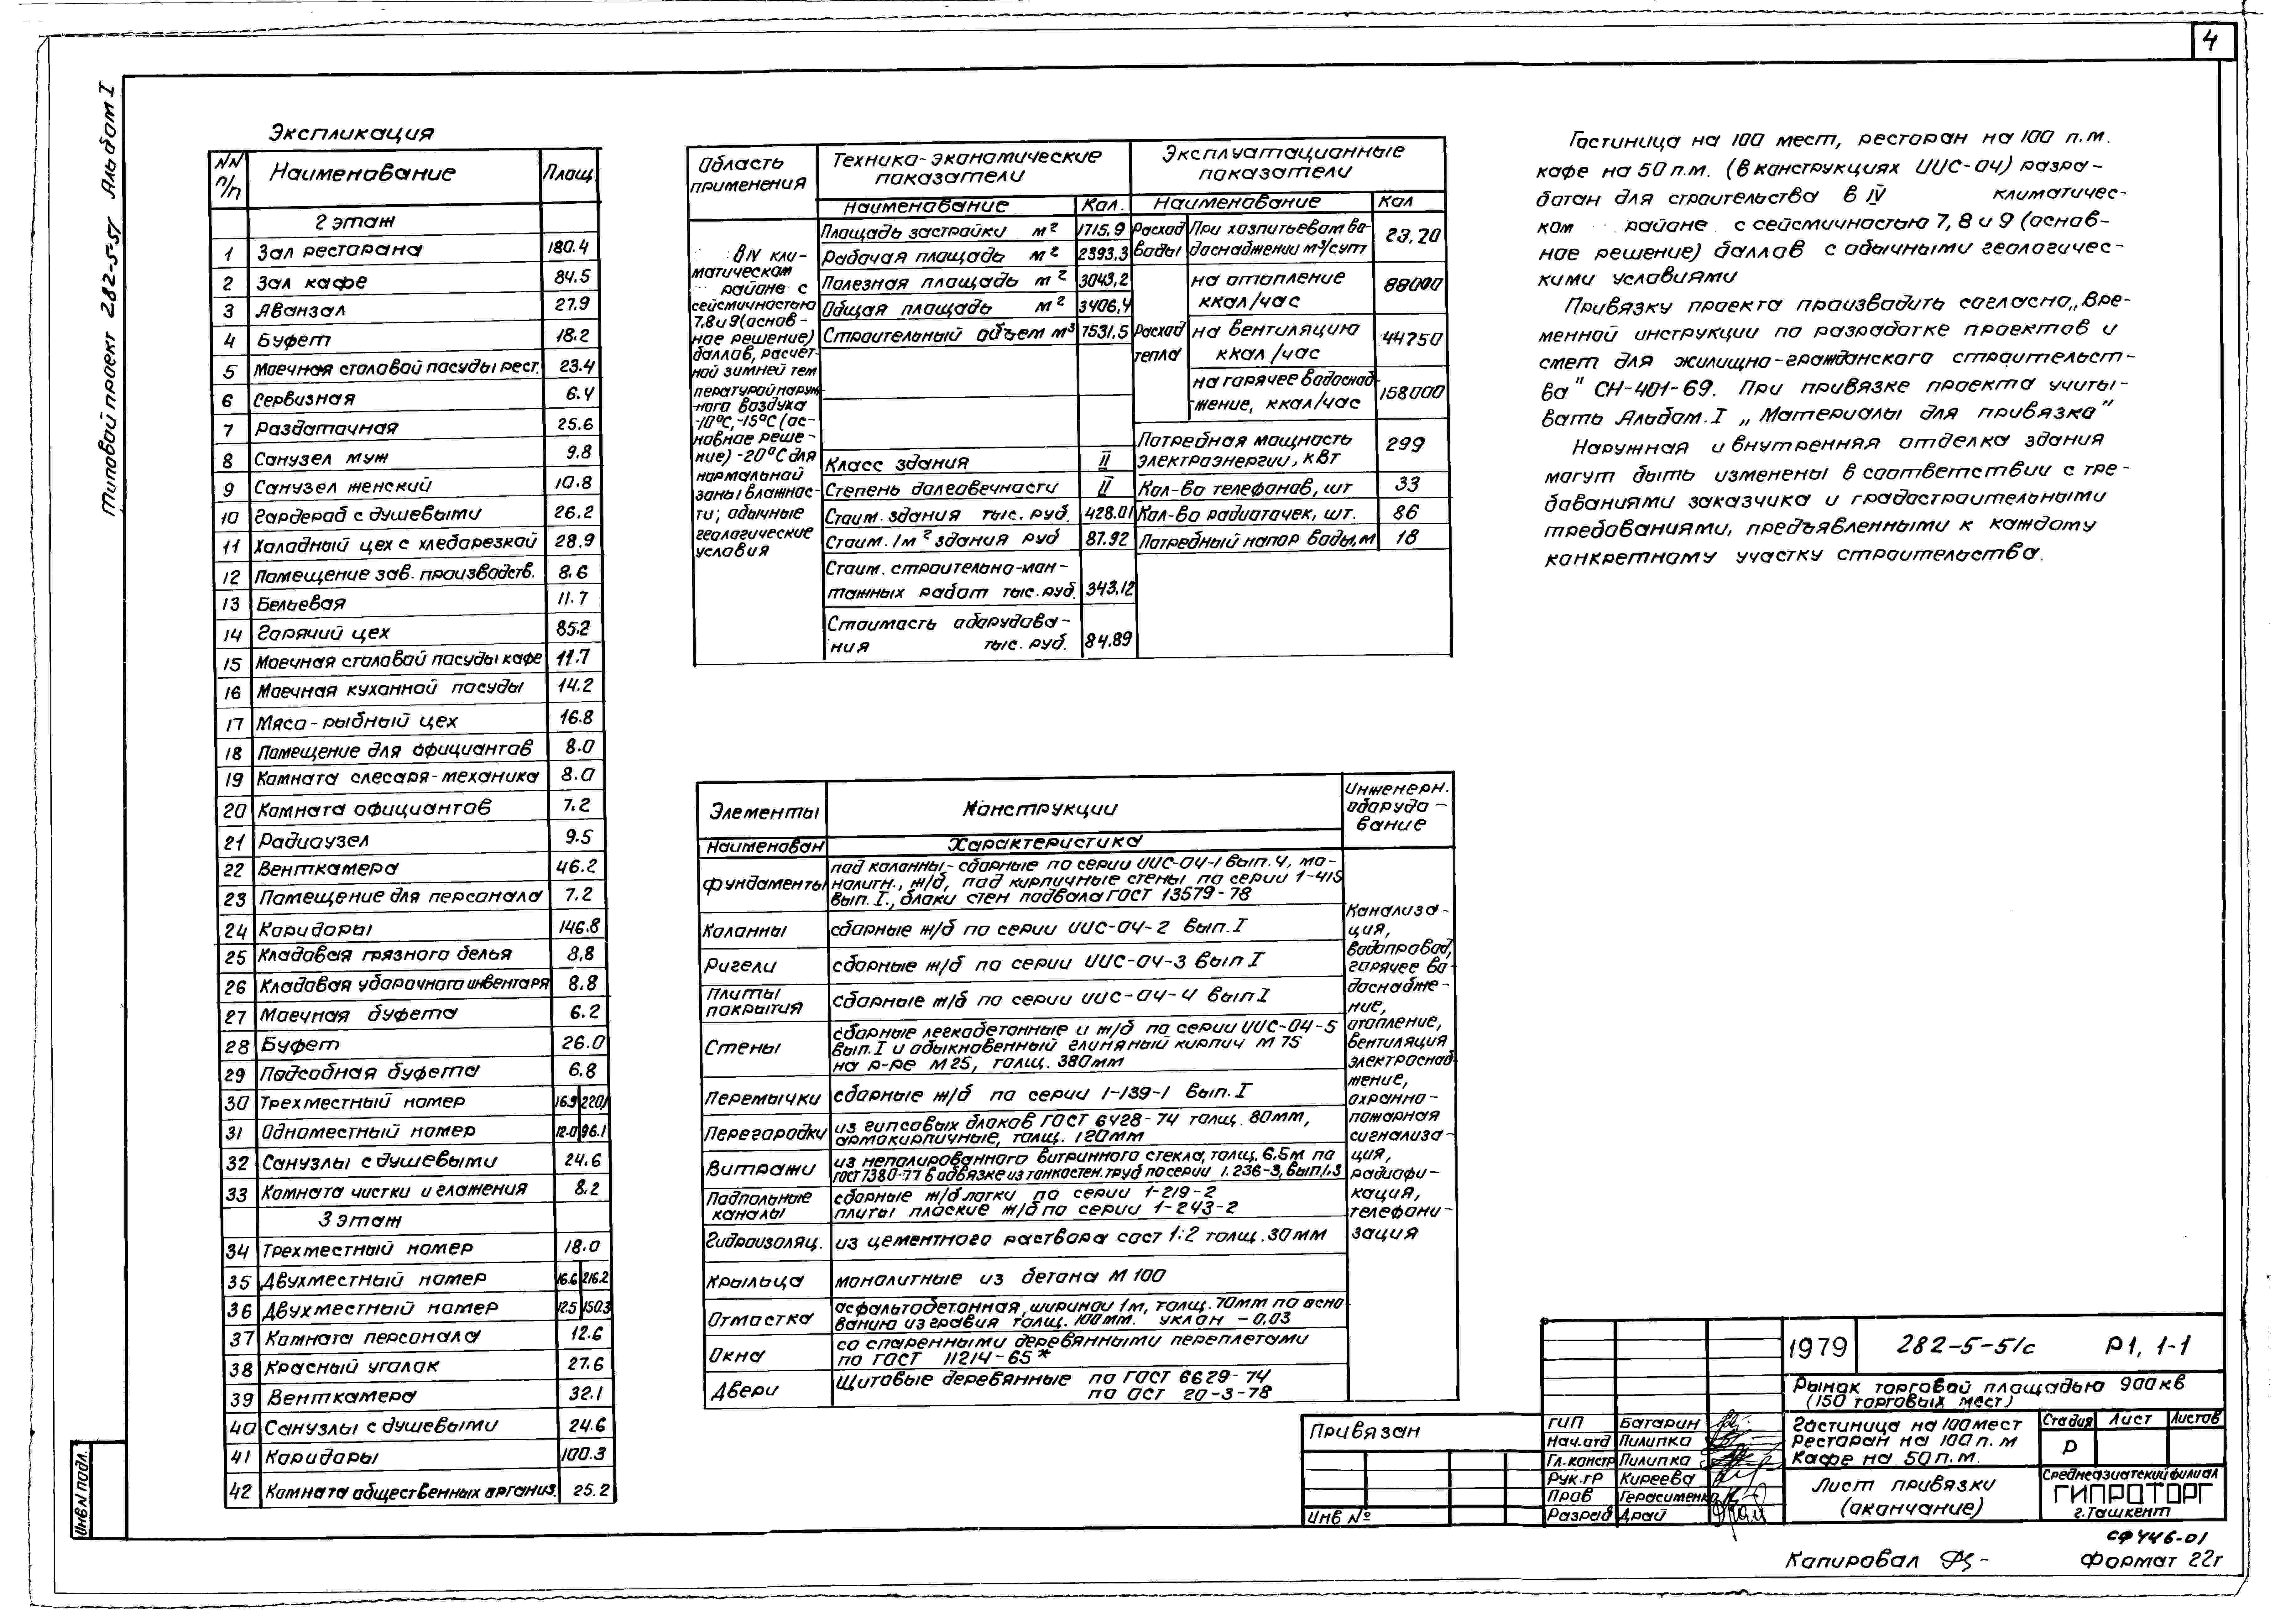 4
Типовой проект 282-5-51 Альбом I
Экспликация
NN п/п Наименование Площ.
2 этаж
1 Зал ресторана 180.4
2 Зал кафе 84.5
3 Аванзал 27.9
4 Буфет 18.2
5 Моечная столовой посуды рест. 23.4
6 Сервизная 6.4
7 Раздаточная 25.6
8 Санузел муж 9.8
9 Санузел женский 10.8
10 Гардероб с душевыми 26.2
11 Холодный цех с хлеборезкой 28.9
12 Помещение зав. производств. 8.6
13 Бельевая 11.7
14 Горячий цех 85.2
15 Моечная столовой посуды кафе 11.7
16 Моечная кухонной посуды 14.2
17 Мясо-рыбный цех 16.8
18 Помещение для официантов 8.0
19 Комната слесаря-механика 8.0
20 Комната официантов 7.2
21 Радиоузел 9.5
22 Венткамера 46.2
23 Помещение для персонала 7.2
24 Коридоры 146.8
25 Кладовая грязного белья 8,8
26 Кладовая уборочного инвентаря 8.8
27 Моечная буфета 6.2
28 Буфет 26.0
29 Подсобная буфета 6.8
30 Трехместный номер 16.9 220,1
31 Одноместный номер 12.0 96.1
32 Санузлы с душевыми 24.6
33 Комната чистки и глажения 8.2
3 этаж
34 Трехместный номер 18.0
35 Двухместный номер 16.6 216.2
36 Двухместный номер 12.5 150.3
37 Комната персонала 12.6
38 Красный уголок 27.6
39 Венткамера 32.1
40 Санузлы с душевыми 24.6
41 Коридоры 100.3
42 Комната общественных организ. 25.2
Область применения
Технико-экономические показатели
Эксплуатационные показатели
Наименование Кол. Наименование Кол
В IV кли-
матическом
районе с
сейсмичностью
7,8 и 9 (основ-
ное решение)
баллов, расчет-
ной зимней тем
пературой наруж
ного воздуха
-10°С, -15°С (ос-
новное реше-
ние) -20°С для
нормальной
зоны влажнос-
ти; обычные
геологические
условия
Площадь застройки м² 1715,9
Рабочая площадь м² 2393,3
Полезная площадь м² 3043,2
Общая площадь м² 3406,4
Строительный объем м³ 7531,5
Класс здания II
Степень долговечности II
Стоим. здания тыс. руб. 428.01
Стоим. 1м² здания руб 87.92
Стоим. строительно-мон-
тажных работ тыс. руб. 343.12
Стоимость оборудова-
ния тыс. руб. 84.89
Расход воды
При хозпитьевом во-
доснабжении м³/сут 23,20
Расход тепла
на отопление
ккал/час 88000
на вентиляцию
ккал/час 44750
на горячее водоснаб-
жение, ккал/час 158000
Потребная мощность
электроэнергии, кВт 299
Кол-во телефонов, шт 33
Кол-во радиоточек, шт. 86
Потребный напор воды, м 18
Элементы Конструкции Инженерн. оборудо-вание
Наименован Характеристика
Фундаменты
под колонны- сборные по серии ИИС-04-1 вып. 4, мо-
нолитн., ж/б, под кирпичные стены по серии 1-415
вып. I., блоки стен подвала ГОСТ 13579-78
Колонны сборные ж/б по серии ИИС-04-2 вып. I
Ригели сборные ж/б по серии ИИС-04-3 вып I
Плиты покрытия сборные ж/б по серии ИИС-04-4 вып I
Стены
сборные легкобетонные и ж/б по серии ИИС-04-5
вып. I и обыкновенный глиняный кирпич М 75
на р-ре М25, толщ. 380мм
Перемычки сборные ж/б по серии 1-139-1 вып. I
Перегородки
из гипсовых блоков ГОСТ 6428-74 толщ. 80мм,
армокирпичные, толщ. 120мм
Витражи
из неполированного витринного стекла, толщ. 6,5м по
ГОСТ 7380-77 в обвязке из тонкостен. труб по серии 1.236-3, вып. 1,3
Подпольные каналы
сборные ж/б лотки по серии 1-219-2
плиты плоские ж/б по серии 1-243-2
Гидроизоляц. из цементного раствора сост 1:2 толщ. 30мм
Крыльца монолитные из бетона М 100
Отмостка
асфальтобетонная, шириной 1м, толщ. 70мм по осно
ванию из гравия толщ. 100мм. уклон -0,03
Окна
со спаренными деревянными переплетами
по ГОСТ 11214-65*
Двери
Щитовые деревянные по ГОСТ 6629-74
по ОСТ 20-3-78
Канализа-
ция,
водопровод,
горячее во-
доснабже-
ние,
отопление,
вентиляция
электроснаб-
жение,
охранно-
пожарная
сигнализа-
ция,
радиофи-
кация,
телефони-
зация
Гостиница на 100 мест, ресторан на 100 п.м.
кафе на 50 п.м. (в конструкциях ИИС-04) разра-
ботан для строительства в IV климатичес-
ком районе с сейсмичностью 7, 8 и 9 (основ-
ное решение) баллов с обычными геологичес-
кими условиями
Привязку проекта производить согласно „Вре-
менной инструкции по разработке проектов и
смет для жилищно-гражданского строительст-
ва" СН-401-69. При привязке проекта учиты-
вать Альбом. I „Материалы для привязки"
Наружная и внутренняя отделка здания
могут быть изменены в соответствии с тре-
бованиями заказчика и градостроительными
требованиями, предъявленными к каждому
конкретному участку строительства.
Привязан
Инв №
1979 282-5-51с Р1, 1-1
Рынок торговой площадью 900кв
(150 торговых мест)
ГИП Батарин
Нач.отд Пилипко
Гл.констр Пилипко
Рук.гр Киреева
Пров Герасименко
Разраб Драй
Гостиница на 100мест
Ресторан на 100п.м
Кафе на 50п.м.
Стадия Лист Листов
Р
Лист привязки
(окончание)
Среднеазиатский филиал
ГИПРОТОРГ
г. Ташкент
СФ 446-01
Копировал
Формат 22г
Инв N подл.